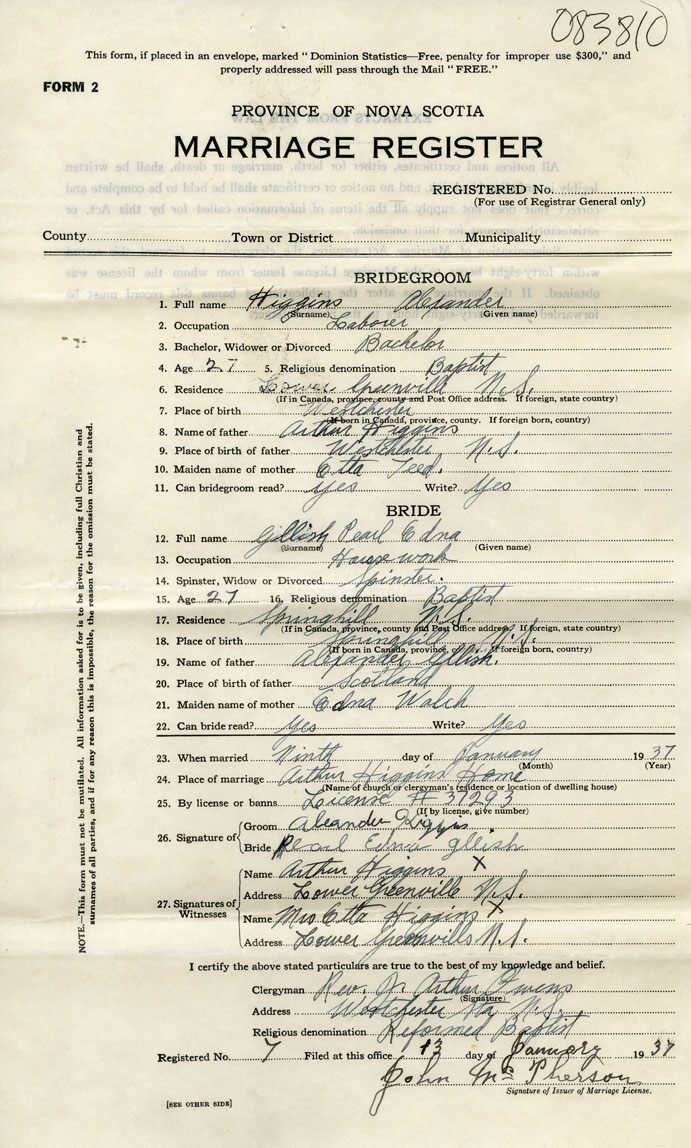 083810
This form, if placed in an envelope, marked "Dominion Statistics—Free, penalty for improper use $300," and
properly addressed will pass through the Mail "FREE."
FORM 2
PROVINCE OF NOVA SCOTIA
MARRIAGE REGISTER
REGISTERED No.
(For use of Registrar General only)
County Town or District Municipality
BRIDEGROOM
1. Full name Higgins Alexander
(Surname) (Given name)
2. Occupation Laborer
3. Bachelor, Widower or Divorced Bachelor
4. Age 27 5. Religious denomination Baptist
6. Residence Lower Greenville N.S.
(If in Canada, province, county and Post Office address. If foreign, state country)
7. Place of birth Westchester
(If born in Canada, province, county. If foreign born, country)
8. Name of father Arthur Higgins
9. Place of birth of father Westchester N.S.
10. Maiden name of mother Etta Teed.
11. Can bridegroom read? Yes Write? Yes
BRIDE
12. Full name Gllish Pearl Edna
(Surname) (Given name)
13. Occupation House work
14. Spinster, Widow or Divorced Spinster.
15. Age 27 16. Religious denomination Baptist
17. Residence Springhill N.S.
(If in Canada, province, county and Post Office address. If foreign, state country)
18. Place of birth Springhill N.S.
(If born in Canada, province, county. If foreign born, country)
19. Name of father Alexander Gllish.
20. Place of birth of father Scotland
21. Maiden name of mother Edna Walch
22. Can bride read? Yes Write? Yes
23. When married Ninth day of January 1937
(Month) (Year)
24. Place of marriage Arthur Higgins Home
(Name of church or clergyman's residence or location of dwelling house)
25. By license or banns License # 37293
(If by license, give number)
26. Signature of
Groom Aleander
Bride Pearl Edna Gllish
27. Signatures of Witnesses
Name Arthur Higgins X
Address Lower Greenville N.S.
Name Mrs Etta Higgins X
Address Lower Greenville N.S.
I certify the above stated particulars are true to the best of my knowledge and belief.
Clergyman Rev. Jr. Arthur Owens
(Signature)
Address Westchester Sta N.S.
Religious denomination Reformed Baptist
Registered No. 7 Filed at this office 13 day of January 1937
John McPherson
Signature of Issuer of Marriage License.
[SEE OTHER SIDE]
NOTE.—This form must not be mutilated. All information asked for is to be given, including full Christian and
surnames of all parties, and if for any reason this is impossible, the reason for the omission must be stated.